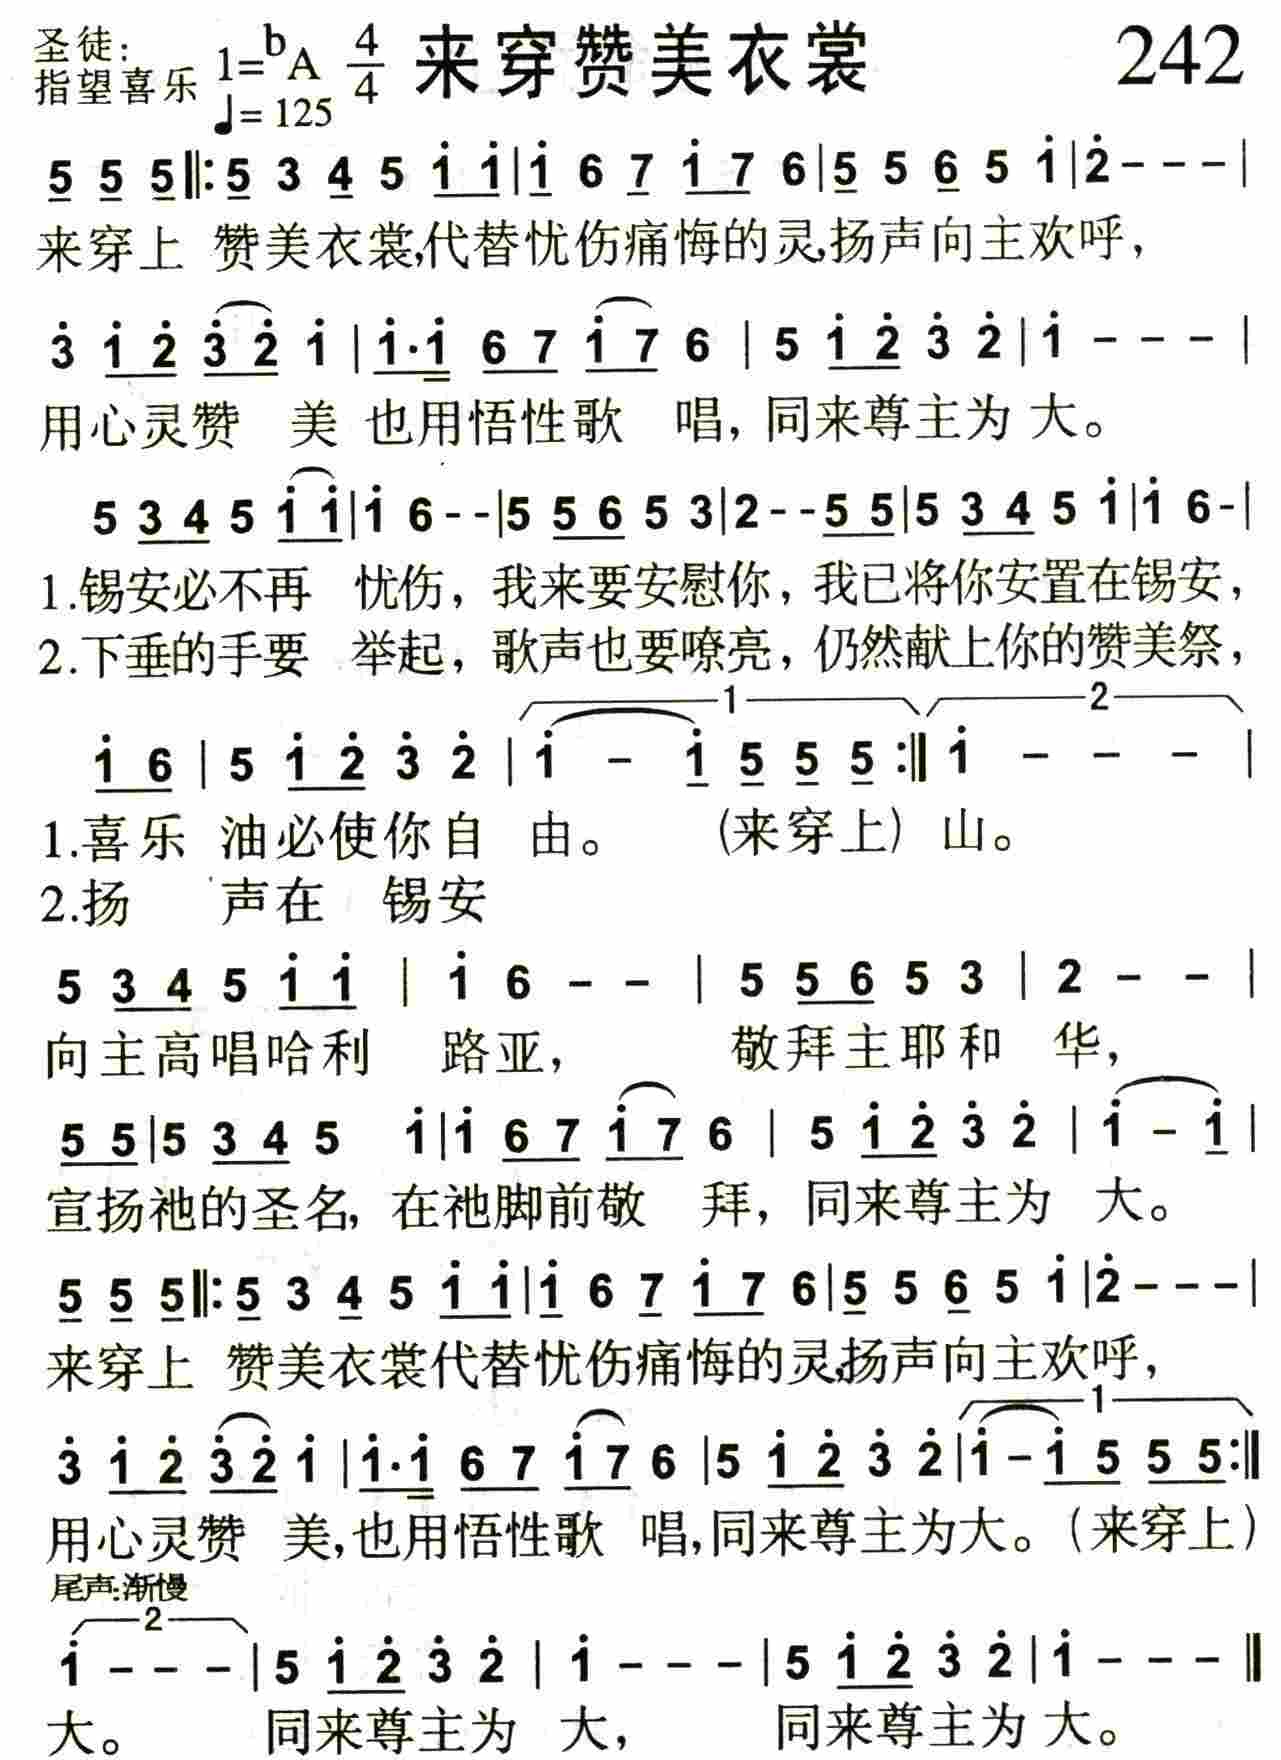 圣徒: 1=bA 4/4 来穿赞美衣裳 242
指望喜乐 ♩=125
5 5 5‖:5 3 4 5 i i|i 6 7 i 7 6|5 5 6 5 i|2̇ - - -|
来穿上 赞美衣裳,代替忧伤痛悔的灵,扬声向主欢呼,
3̇ i 2̇ 3̇ 2̇ i|i·i 6 7 i 7 6|5 i 2̇ 3̇ 2̇|i - - -|
用心灵赞 美 也用悟性歌 唱, 同来尊主为 大。
5 3 4 5 i i|i 6 - -|5 5 6 5 3|2 - - 5 5|5 3 4 5 i|i 6 -|
1.锡安必不再 忧伤, 我来要安慰你, 我已将你安置在锡安,
2.下垂的手要 举起, 歌声也要嘹亮, 仍然献上你的赞美祭,
1 2
i 6|5 i 2̇ 3̇ 2̇|i - i 5 5 5:‖i - - -|
1.喜乐 油必使你自 由。 (来穿上) 山。
2.扬 声在 锡安
5 3 4 5 i i|i 6 - -|5 5 6 5 3|2 - -|
向主高唱哈利 路亚, 敬拜主耶和 华,
5 5|5 3 4 5 i|i 6 7 i 7 6|5 i 2̇ 3̇ 2̇|i - i|
宣扬祂的圣名, 在祂脚前敬 拜, 同来尊主为 大。
5 5 5‖:5 3 4 5 i i|i 6 7 i 7 6|5 5 6 5 i|2̇ - - -|
来穿上 赞美衣裳代替忧伤痛悔的灵,扬声向主欢呼,
1
3̇ i 2̇ 3̇ 2̇ i|i·i 6 7 i 7 6|5 i 2̇ 3̇ 2̇|i - i 5 5 5:‖
用心灵赞 美,也用悟性歌 唱,同来尊主为大。(来穿上)
尾声:渐慢
2
i - - -|5 i 2̇ 3̇ 2̇|i - - -|5 i 2̇ 3̇ 2̇|i - - -‖
大。 同来尊主为 大, 同来尊主为 大。